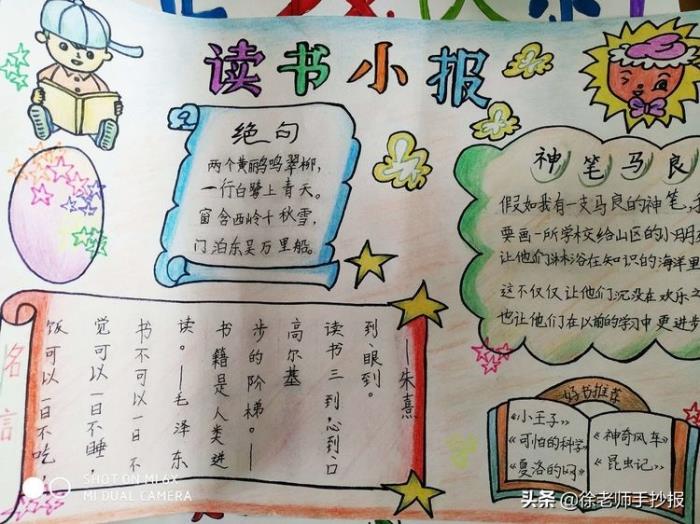 读书小报
绝句
两个黄鹂鸣翠柳，
一行白鹭上青天。
窗含西岭千秋雪，
门泊东吴万里船。
神笔马良
假如我有一支马良的神笔，
要画一所学校给山区的小朋
让他们沐浴在知识的海洋里
这不仅仅让他们沉没在欢乐之
也让他们在以前的学习中更进步
名言
饭可以一日不吃
觉可以一日不睡，
书不可以一日不
读。——毛泽东
书籍是人类进
步的阶梯。——
高尔基
读书三到，心到口
到、眼到。
——朱熹
好书推荐
《小王子》
《可怕的科学》
《夏洛的网》
《神奇风车》
《昆虫记》
SHOT ON MI 6X
MI DUAL CAMERA
头条 @徐老师手抄报